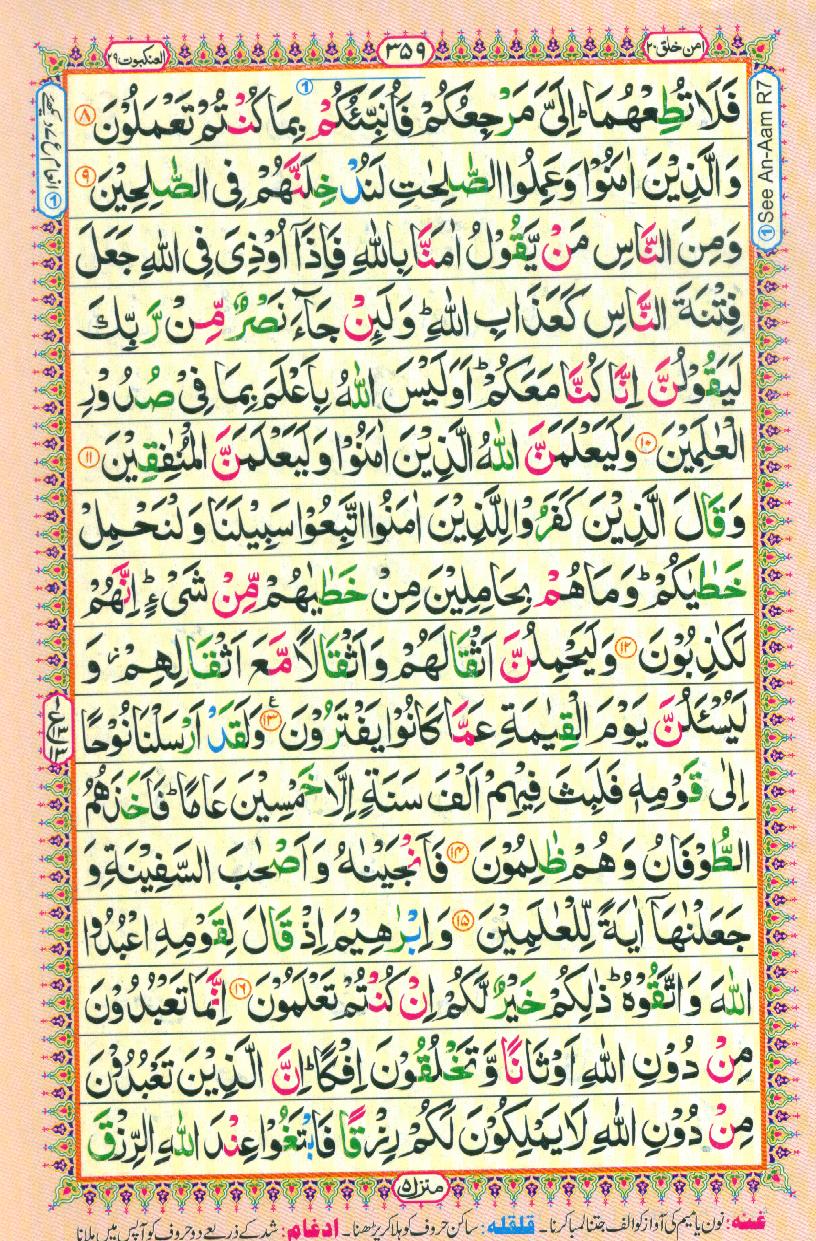 امن خلق ٢٠
٣٥٩
العنكبوت ٢٩
فَلَا تُطِعْهُمَا ؕ اِلَیَّ مَرْجِعُكُمْ فَاُنَبِّئُكُمْ بِمَا كُنْتُمْ تَعْمَلُوْنَ ﴿٨﴾
وَالَّذِیْنَ اٰمَنُوْا وَعَمِلُوا الصّٰلِحٰتِ لَنُدْخِلَنَّهُمْ فِی الصّٰلِحِیْنَ ﴿٩﴾
وَمِنَ النَّاسِ مَنْ یَّقُوْلُ اٰمَنَّا بِاللّٰهِ فَاِذَاۤ اُوْذِیَ فِی اللّٰهِ جَعَلَ
فِتْنَةَ النَّاسِ كَعَذَابِ اللّٰهِ ؕ وَلَىِٕنْ جَآءَ نَصْرٌ مِّنْ رَّبِّكَ
لَیَقُوْلُنَّ اِنَّا كُنَّا مَعَكُمْ ؕ اَوَلَیْسَ اللّٰهُ بِاَعْلَمَ بِمَا فِیْ صُدُوْرِ
الْعٰلَمِیْنَ ﴿١٠﴾ وَلَیَعْلَمَنَّ اللّٰهُ الَّذِیْنَ اٰمَنُوْا وَلَیَعْلَمَنَّ الْمُنٰفِقِیْنَ ﴿١١﴾
وَقَالَ الَّذِیْنَ كَفَرُوْا لِلَّذِیْنَ اٰمَنُوا اتَّبِعُوْا سَبِیْلَنَا وَلْنَحْمِلْ
خَطٰیٰكُمْ ؕ وَمَا هُمْ بِحَامِلِیْنَ مِنْ خَطٰیٰهُمْ مِّنْ شَیْءٍ ؕ اِنَّهُمْ
لَكٰذِبُوْنَ ﴿١٢﴾ وَلَیَحْمِلُنَّ اَثْقَالَهُمْ وَاَثْقَالًا مَّعَ اَثْقَالِهِمْ ؗ وَ
لَیُسْـَٔلُنَّ یَوْمَ الْقِیٰمَةِ عَمَّا كَانُوْا یَفْتَرُوْنَ ﴿١٣﴾ وَلَقَدْ اَرْسَلْنَا نُوْحًا
اِلٰی قَوْمِهٖ فَلَبِثَ فِیْهِمْ اَلْفَ سَنَةٍ اِلَّا خَمْسِیْنَ عَامًا ؕ فَاَخَذَهُمُ
الطُّوْفَانُ وَهُمْ ظٰلِمُوْنَ ﴿١٤﴾ فَاَنْجَیْنٰهُ وَاَصْحٰبَ السَّفِیْنَةِ وَ
جَعَلْنٰهَاۤ اٰیَةً لِّلْعٰلَمِیْنَ ﴿١٥﴾ وَاِبْرٰهِیْمَ اِذْ قَالَ لِقَوْمِهِ اعْبُدُوا
اللّٰهَ وَاتَّقُوْهُ ؕ ذٰلِكُمْ خَیْرٌ لَّكُمْ اِنْ كُنْتُمْ تَعْلَمُوْنَ ﴿١٦﴾ اِنَّمَا تَعْبُدُوْنَ
مِنْ دُوْنِ اللّٰهِ اَوْثَانًا وَّتَخْلُقُوْنَ اِفْكًا ؕ اِنَّ الَّذِیْنَ تَعْبُدُوْنَ
مِنْ دُوْنِ اللّٰهِ لَا یَمْلِكُوْنَ لَكُمْ رِزْقًا فَابْتَغُوْا عِنْدَ اللّٰهِ الرِّزْقَ
① See An-Aam R7
منزل ٥
غنه: نون یا میم کی آواز کو الف جتنا لمبا کرنا۔ قلقله: ساکن حروف کو ہلا کر پڑھنا۔ ادغام: شد کے ذریعے دو حروف کو آپس میں ملانا